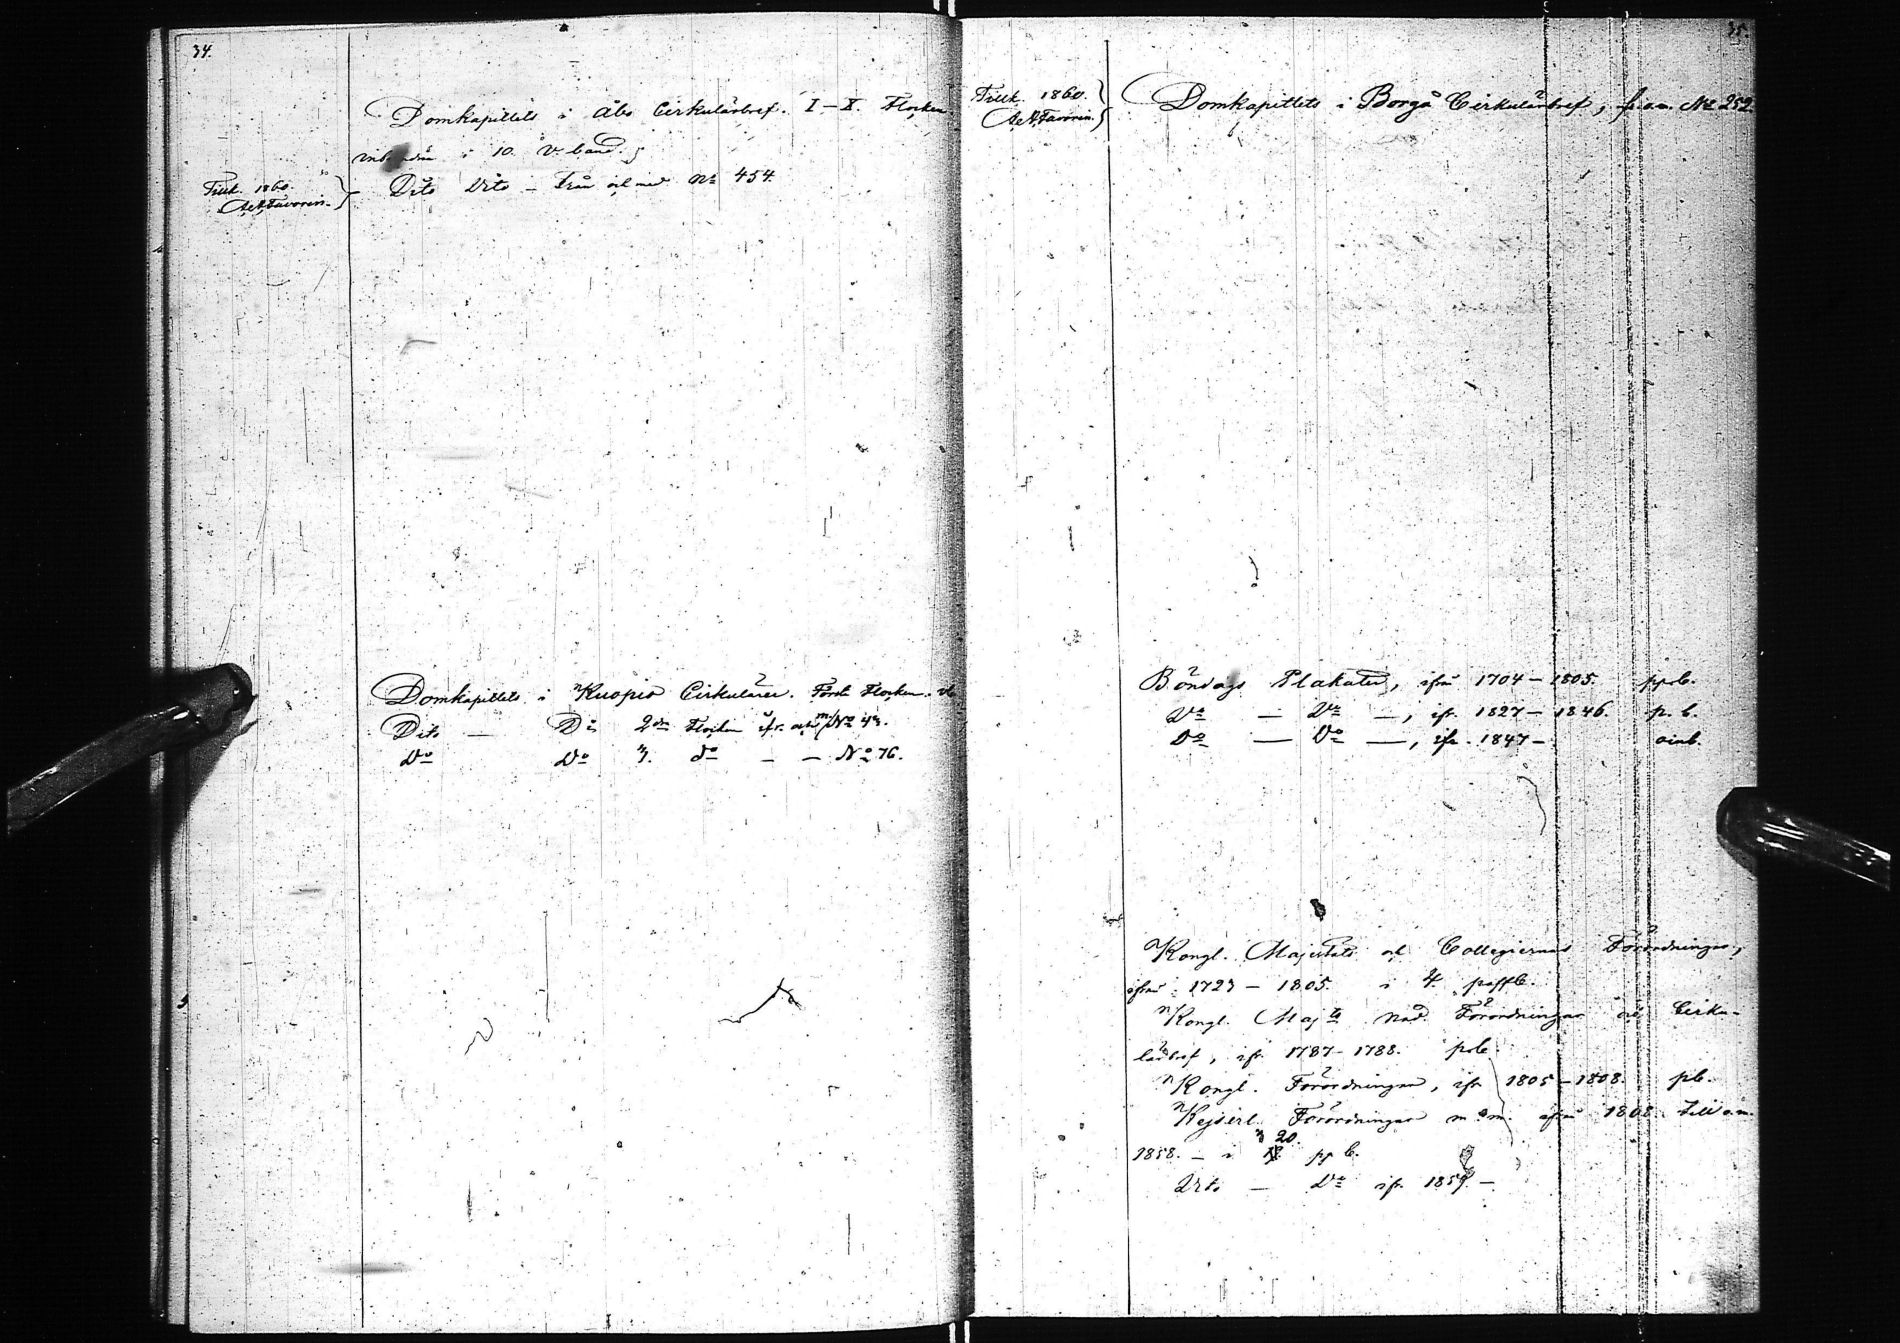 34.
Domkapitlets i Åbo Cirkulärbref. I–X. Flocken
i 10. v. band.
Tillk. 1860. Dito Dito – från och med No 454.
A.A. Favorin.
Domkapitlets i Kuopio Cirkulärer. Förste Flocken.
Dito — Do 2dra Flocken ifr. och m/ No 43.
Do Do 3. do — — No 76.
35.
Tillk. 1860. Domkapitlets i Borgå Cirkulärbref, fr. o. m. No 252
A.A. Favorin.
Böndags Plakater, ifrån 1704–1805. ppb.
Do — Do —, ifr. 1827–1846. p. b.
Do — Do —, ifr. 1847– oinb.
Kongl. Majestäts och Collegiernas Förordningar,
ifrån 1723–1805. i 4. pappb.
Kongl. Maj:ts Nåd. Förordningar och Cirku-
lärbref, ifr. 1787–1788. ppb.
Kongl. Förordningar, ifr. 1805–1808. pb.
Kejserl. Förordningar m. m. ifrån 1808. till o. m.
1858. – i 20. pp b.
Dito — Do ifr. 1859. –